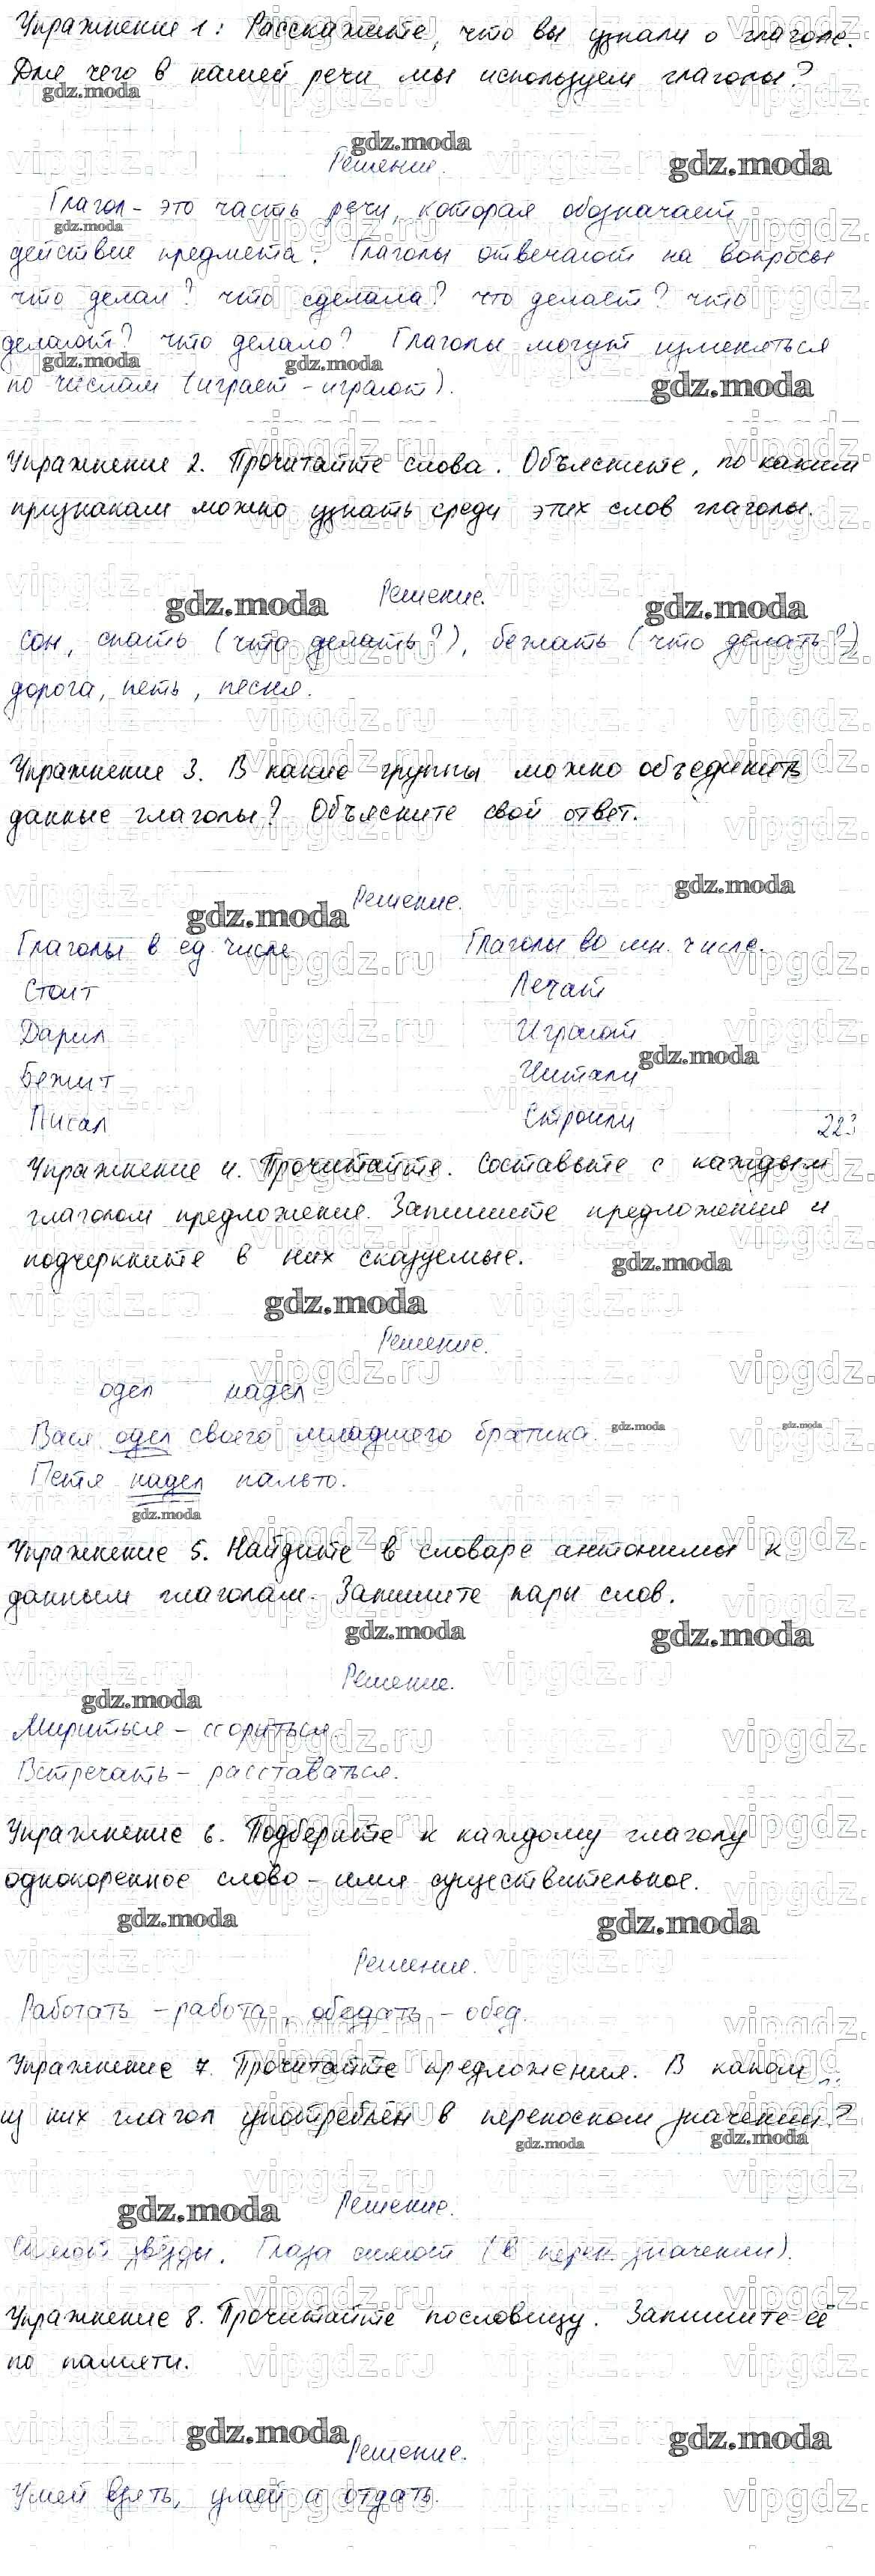 Упражнение 1: Расскажите, что вы узнали о глаголе.
Для чего в нашей речи мы используем глаголы?
Решение.
Глагол - это часть речи, которая обозначает
действие предмета. Глаголы отвечают на вопросы
что делал? что сделала? что делает? что
делают? что делало? Глаголы могут изменяться
по числам (играет - играют).
Упражнение 2. Прочитайте слова. Объясните, по каким
признакам можно узнать среди этих слов глаголы.
Решение.
Сон, спать (что делать?), бежать (что делать?)
дорога, петь, песня.
Упражнение 3. В какие группы можно объединить
данные глаголы? Объясните свой ответ.
Решение.
Глаголы в ед. числе Глаголы во мн. числе.
Стоит Лечат
Дарил Играют
Бежит Читали
Писал Строили 223
Упражнение 4. Прочитайте. Составьте с каждым
глаголом предложение. Запишите предложения и
подчеркните в них сказуемые.
Решение.
одел надел
Вася одел своего младшего братика.
Петя надел пальто.
Упражнение 5. Найдите в словаре антонимы к
данным глаголам. Запишите пары слов.
Решение.
Мириться - ссориться
Встречать - расставаться.
Упражнение 6. Подберите к каждому глаголу
однокоренное слово - имя существительное.
Решение.
Работать - работа, обедать - обед.
Упражнение 7. Прочитайте предложения. В каком
из них глагол употреблён в переносном значении?
Решение.
Сияют звёзды. Глаза сияют (в перен. значении).
Упражнение 8. Прочитайте пословицу. Запишите её
по памяти.
Решение.
Умей взять, умей и отдать.